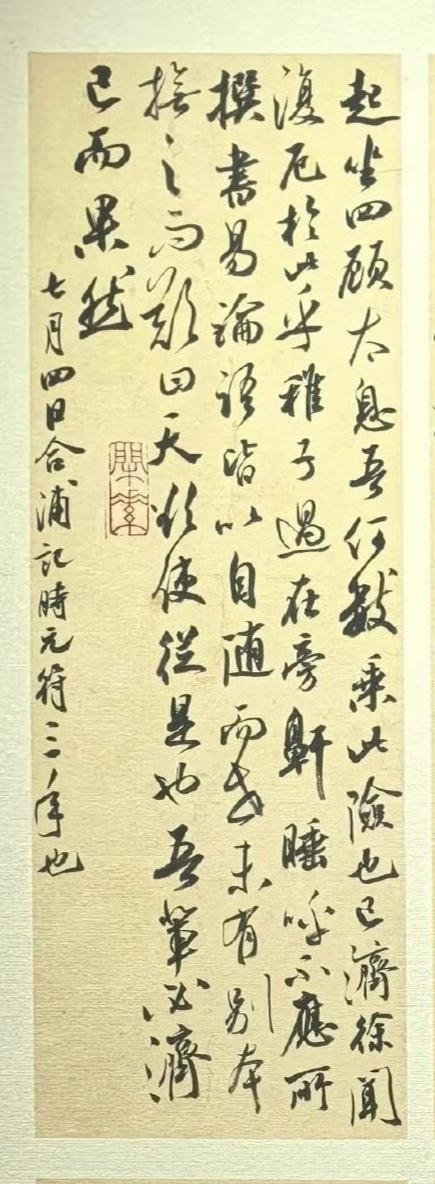 起坐四顾太息吾何数乘此險也已濟徐聞
復厄於此乎稚子過在旁鼾睡呼不應所
撰書易論語皆以自随而世未有别本
撫之而歎曰天欲使從是也吾輩必濟
已而果然
七月四日合浦記時元符三年也